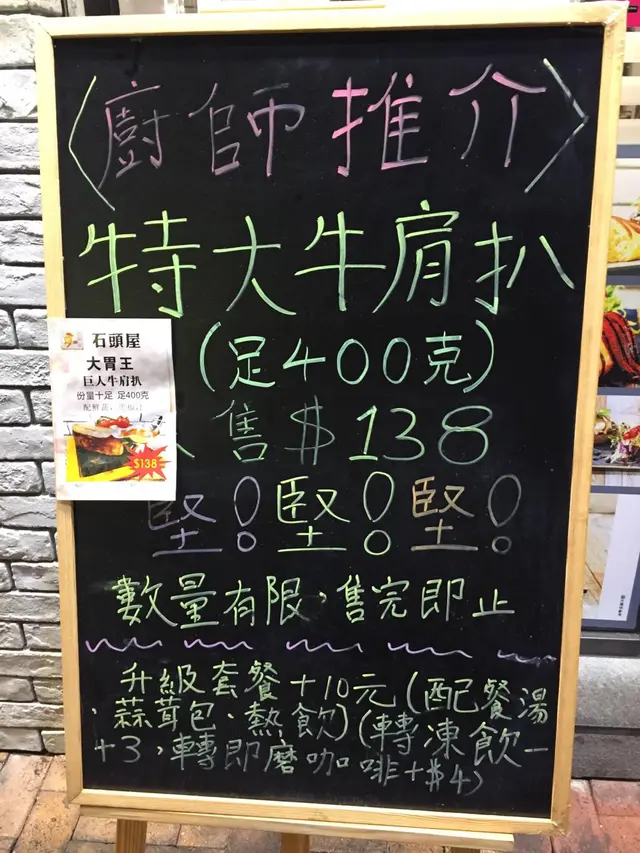 〈廚師推介〉
特大牛肩扒
(足400克)
售$138
堅!堅!堅!
數量有限,售完即止
升級套餐+10元(配餐湯
、蒜茸包、熱飲)(轉凍飲
+3,轉即磨咖啡+$4)
石頭屋
大胃王
巨人牛肩扒
份量十足 足400克
$138